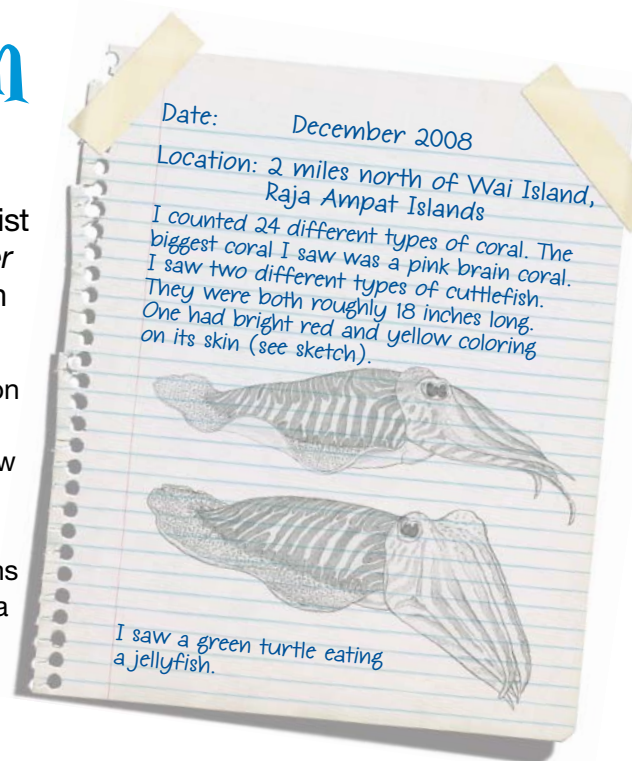 n
ist
er
n
on
w
ns
a
Date: December 2008
Location: 2 miles north of Wai Island,
Raja Ampat Islands
I counted 24 different types of coral. The
biggest coral I saw was a pink brain coral.
I saw two different types of cuttlefish.
They were both roughly 18 inches long.
One had bright red and yellow coloring
on its skin (see sketch).
I saw a green turtle eating
a jellyfish.